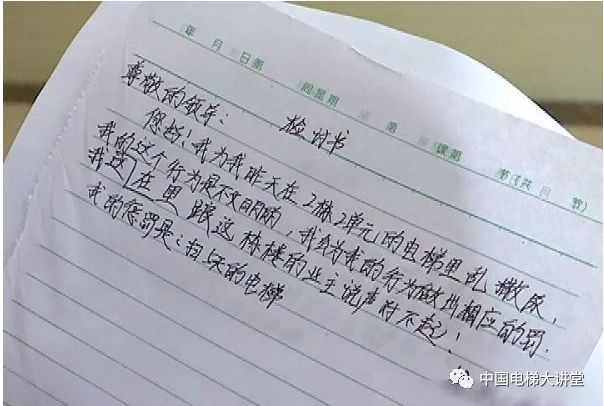 年 月 日第 周星期 第 课第 节(共 节)
检讨书
尊敬的领导：
您好！我为我昨天在2栋2单元的电梯里乱撒尿，
我的这个行为是不文明的，我会为我的行为做出相应的罚，
我在这里跟这栋楼的业主说声对不起！
我的惩罚是：扫5天的电梯
中国电梯大讲堂